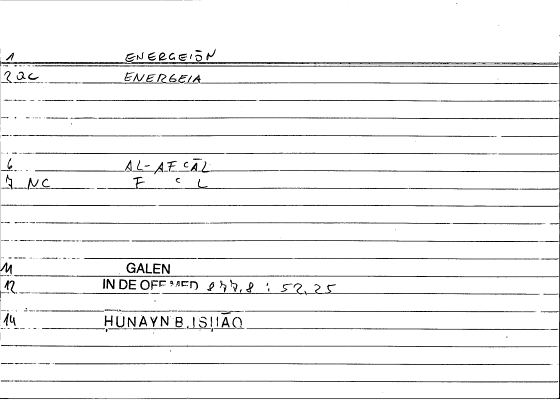 1 ENERGEIŌN
2 ac ENERGEIA
6 AL-AFʿĀL
7 NC F ʿ L
11 GALEN
12 IN DE OFF MED 877,8 : 52,25
14 ḤUNAYN B. ISḤĀQ